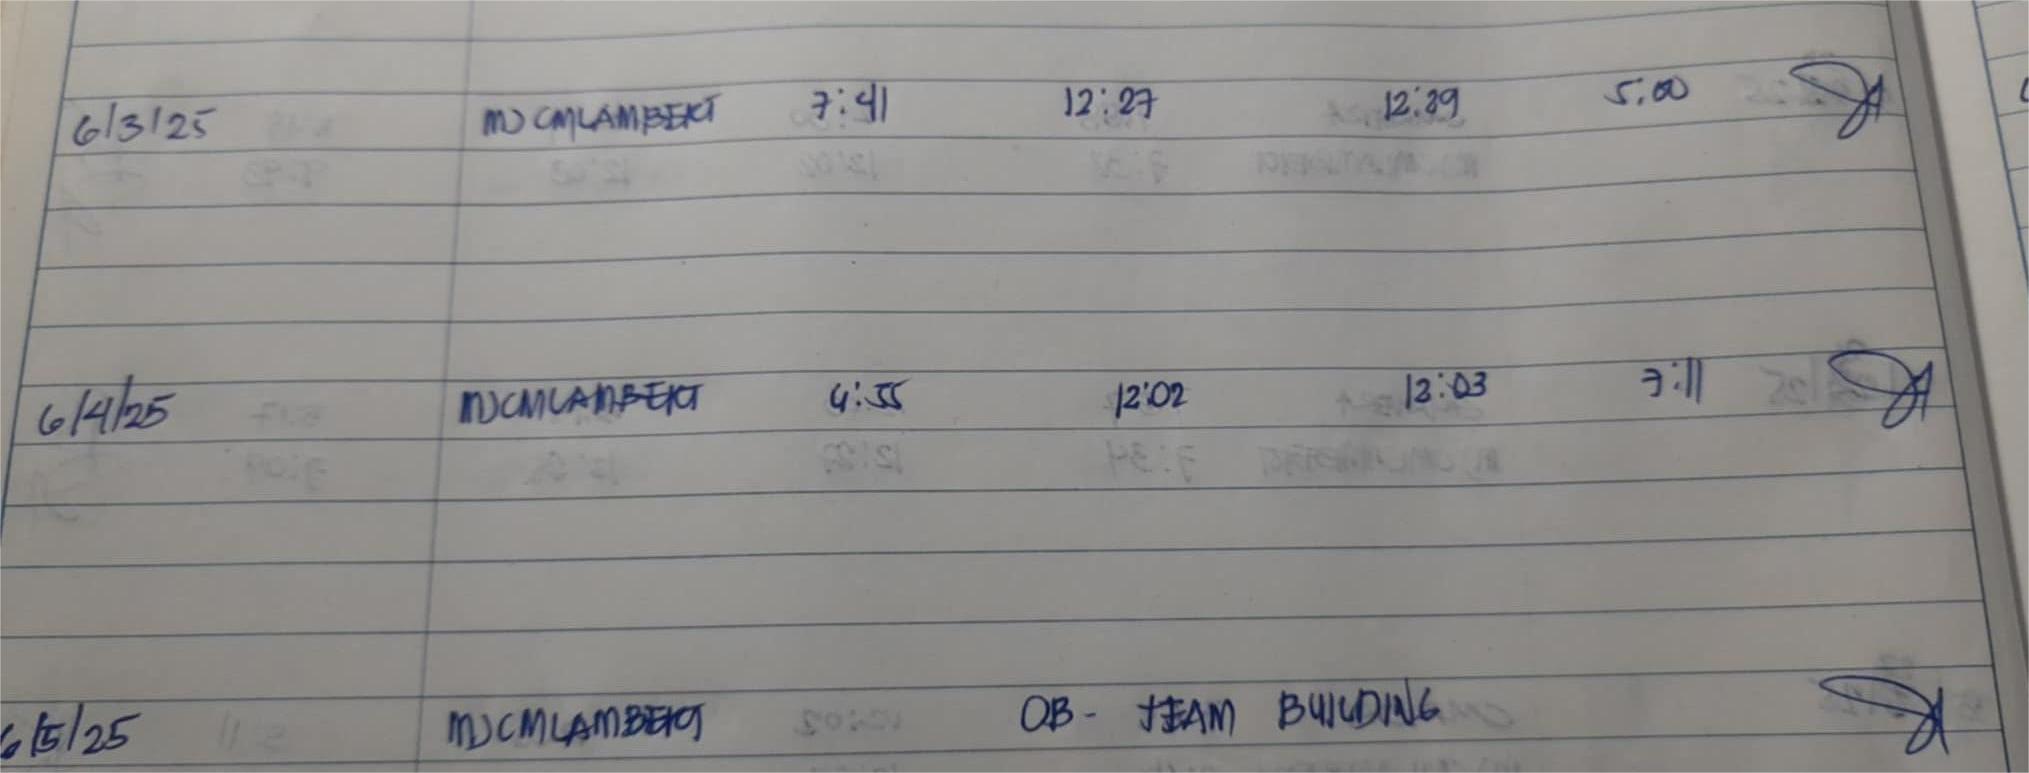 6/3/25 MJCMLAMBERT 7:41 12:27 12:29 5:00
6/4/25 MJCMLAMBERT 6:55 12:02 12:03 7:11
6/5/25 MJCMLAMBERT OB - TEAM BUILDING